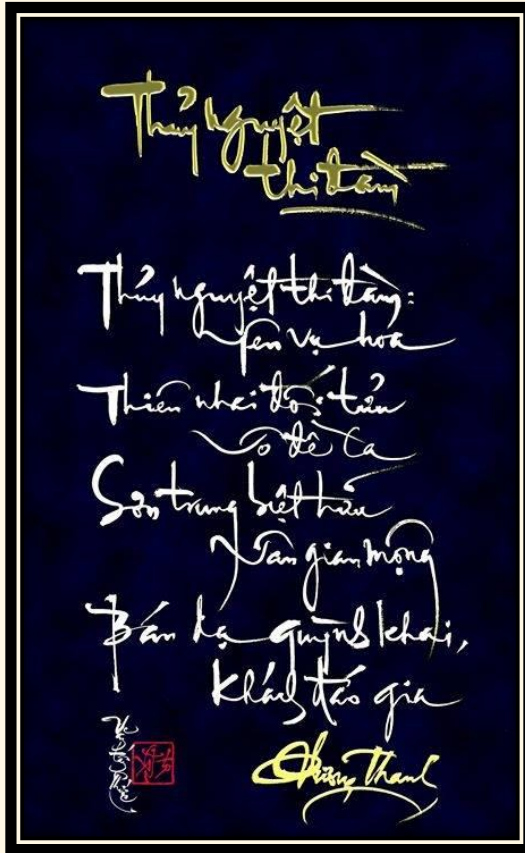 Thủy nguyệt
thi đàn
Thủy nguyệt thi đàn:
vụ hoa
Thiên nhai đối tửu
đề ca
Sơn trung biệt hữu
gian mộng
Bán dạ quỳnh khai,
khách đáo gia
Thanh